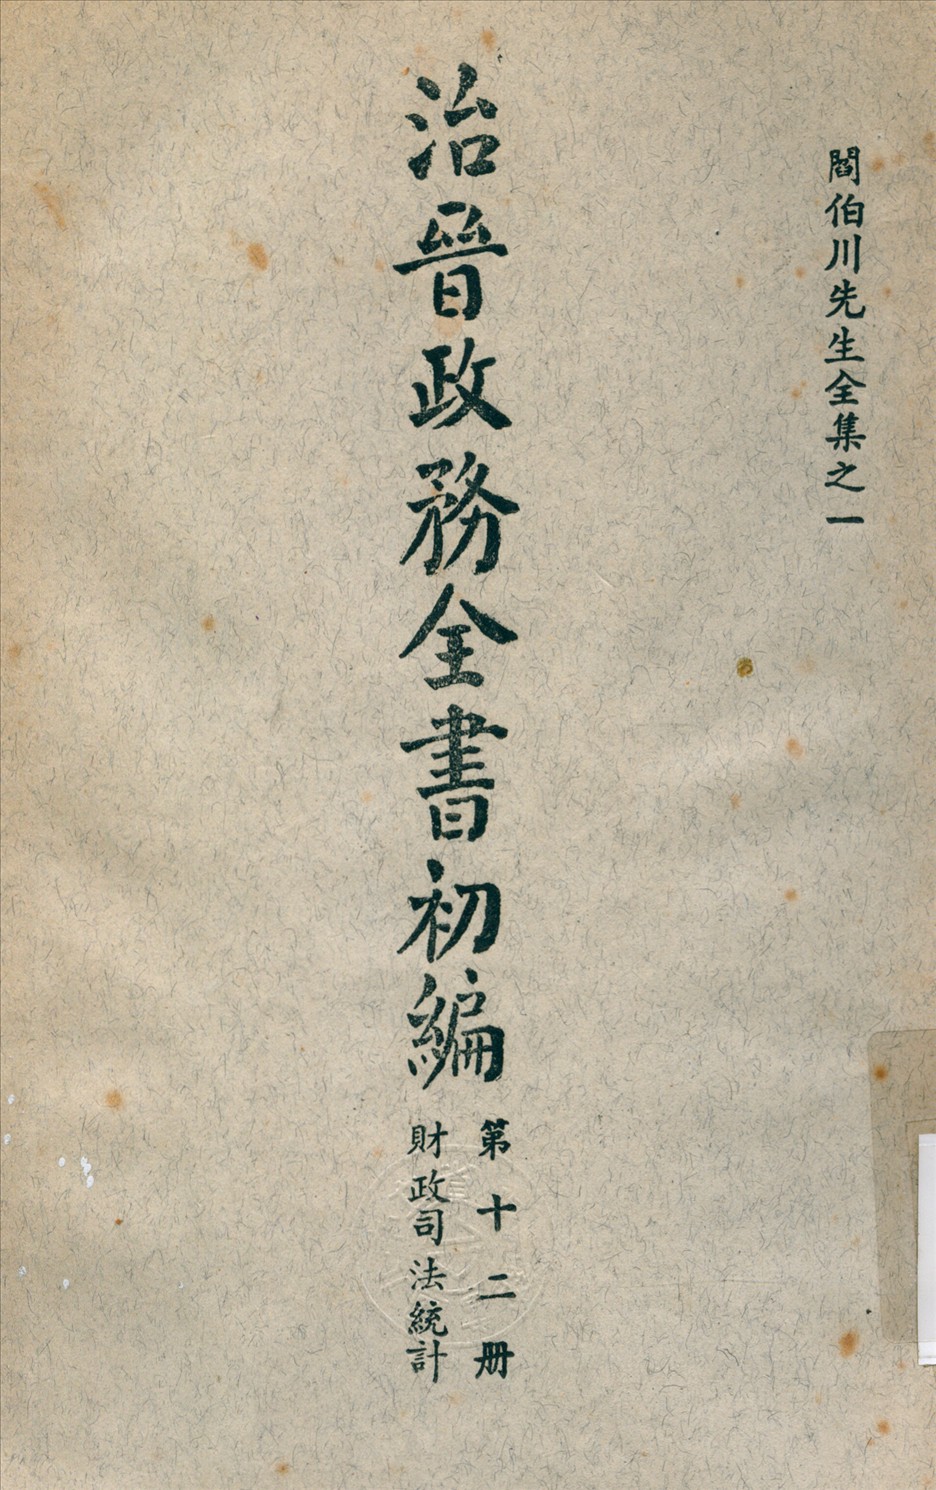 閻伯川先生全集之一
治晉政務全書初編
第十二册
財政司法統計